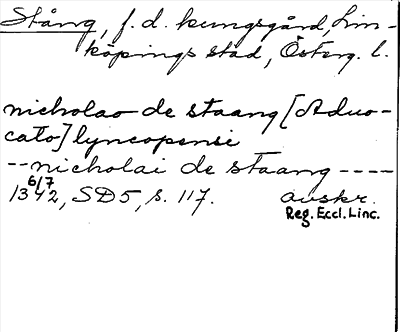 Stång, f.d. kungsgård, Lin-
köpings stad, Österg. l.
nicholao de staang [Aduo-
cato] lyncopensi
--nicholai de staang ----
6/7
1342, SD5, s. 117. avskr.
Reg. Eccl. Linc.